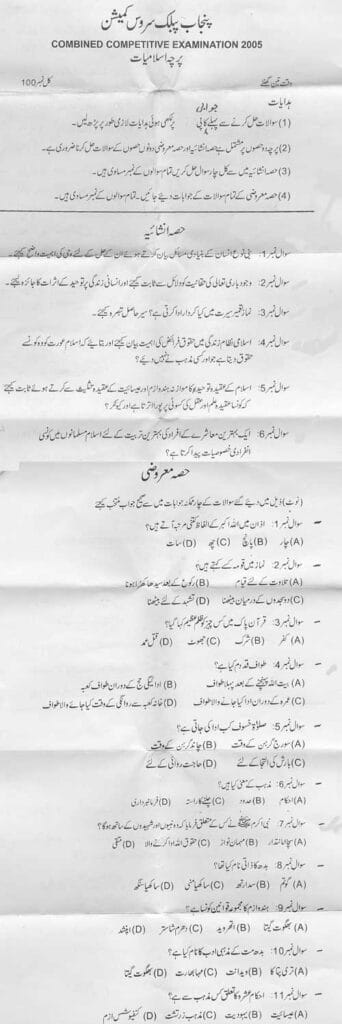 پنجاب پبلک سروس کمیشن
COMBINED COMPETITIVE EXAMINATION 2005
پرچہ اسلامیات
وقت تین گھنٹے کل نمبر 100
ہدایات
(1) سوالات حل کرنے سے پہلے جوابی کاپی پر لکھی ہوئی ہدایات لازمی طور پر پڑھ لیں۔
(2) پرچہ دو حصوں پر مشتمل ہے حصہ انشائیہ اور حصہ معروضی دونوں حصوں کے سوالات حل کرنا ضروری ہے۔
(3) حصہ انشائیہ میں سے کل چار سوال حل کریں تمام سوالوں کے نمبر مساوی ہیں۔
(4) حصہ معروضی کے تمام سوالات کے جوابات دیئے جائیں۔ تمام سوالوں کے نمبر مساوی ہیں۔
حصہ انشائیہ
سوال نمبر 1: بنی نوع انسان کے بنیادی مسائل بیان کرتے ہوئے ان کے حل کے لئے وحی کی اہمیت واضح کیجئے۔
سوال نمبر 2: وجود باری تعالی کی حقانیت کو دلائل سے ثابت کیجئے اور انسانی زندگی پر توحید کے اثرات کا جائزہ لیجئے۔
سوال نمبر 3: نماز تعمیر سیرت میں کیا کردار ادا کرتی ہے؟ سیر حاصل تبصرہ کیجئے۔
سوال نمبر 4: اسلامی نظام زندگی میں حقوق و فرائض کی اہمیت بیان کیجئے اور بتایئے کہ اسلام عورت کو وہ کونسے
حقوق دیتا ہے جو اور کسی مذہب نے نہیں دیئے؟
سوال نمبر 5: اسلام کے عقیدہ توحید کا موازنہ ہندوازم اور عیسائیت کے عقیدہ تثلیث سے کرتے ہوئے ثابت کیجئے
کہ کونسا عقیدہ علم اور عقل کی کسوٹی پر پورا اترتا ہے اور کیونکر؟
سوال نمبر 6: ایک بہترین معاشرے کے افراد کی بہترین تربیت کے لئے اسلام مسلمانوں میں کونسی
انفرادی خصوصیات پیدا کرتا ہے؟
حصہ معروضی
(نوٹ) ذیل میں دیئے گئے سوالات کے چار ممکنہ جوابات میں سے صحیح جواب منتخب کیجئے
سوال نمبر 1: اذان میں اللہ اکبر کے الفاظ کتنی مرتبہ آتے ہیں؟
(A) چار (B) پانچ (C) چھ (D) سات
سوال نمبر 2: نماز میں قومہ کسے کہتے ہیں؟
(A) تلاوت کے لئے قیام (B) رکوع کے بعد سیدھا کھڑا ہونا
(C) دو سجدوں کے درمیان بیٹھنا (D) تشہد کے لئے بیٹھنا
سوال نمبر 3: قرآن پاک میں کس چیز کو ظلم عظیم کہا گیا؟
(A) کفر (B) شرک (C) جھوٹ (D) قتل عمد
سوال نمبر 4: طواف قدوم کیا ہے؟
(A) بیت اللہ پہنچنے کے بعد پہلا طواف (B) ادائیگی حج کے دوران طواف کعبہ
(C) عمرہ کے دوران ادا کیا جانے والا طواف (D) خانہ کعبہ سے روانگی کے وقت کیا جانے والا طواف
سوال نمبر 5: صلوٰۃ خسوف کب ادا کی جاتی ہے؟
(A) سورج گرہن کے وقت (B) چاند گرہن کے وقت
(C) بارش کی التجا کے لئے (D) حاجت روائی کے لئے
سوال نمبر 6: مذہب کے معنی کیا ہیں؟
(A) احکام (B) حدود (C) چلنے کا راستہ (D) فرمانبرداری
سوال نمبر 7: نبی اکرم ﷺ نے کس کے متعلق فرمایا کہ وہ نبیوں اور شہیدوں کے ساتھ ہوگا؟
(A) سچا امانتدار (B) مہمان نواز (C) حقوق اللہ ادا کرنے والا (D) متقی
سوال نمبر 8: بدھ کا ذاتی نام کیا تھا؟
(A) گوتم (B) سدارتھ (C) ساکھیا منی (D) ساکھیا سنگھ
سوال نمبر 9: ہندوازم کا مجموعہ قوانین کونسا ہے؟
(A) بھگوت گیتا (B) اتھروید (C) دھرم شاستر (D) اپنشد
سوال نمبر 10: بدھ مت کے مذہبی ادب کا نام کیا ہے؟
(A) تری پتاکا (B) ویدانت (C) مہابھارت (D) بھگوت گیتا
سوال نمبر 11: احکام عشرہ کا تعلق کس مذہب سے ہے؟
(A) عیسائیت (B) یہودیت (C) مذہب زرتشت (D) کنفیوشس ازم